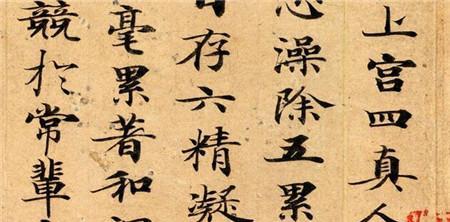 上宫四真人
澡除五累
存六精凝
毫累著和
競於常輩